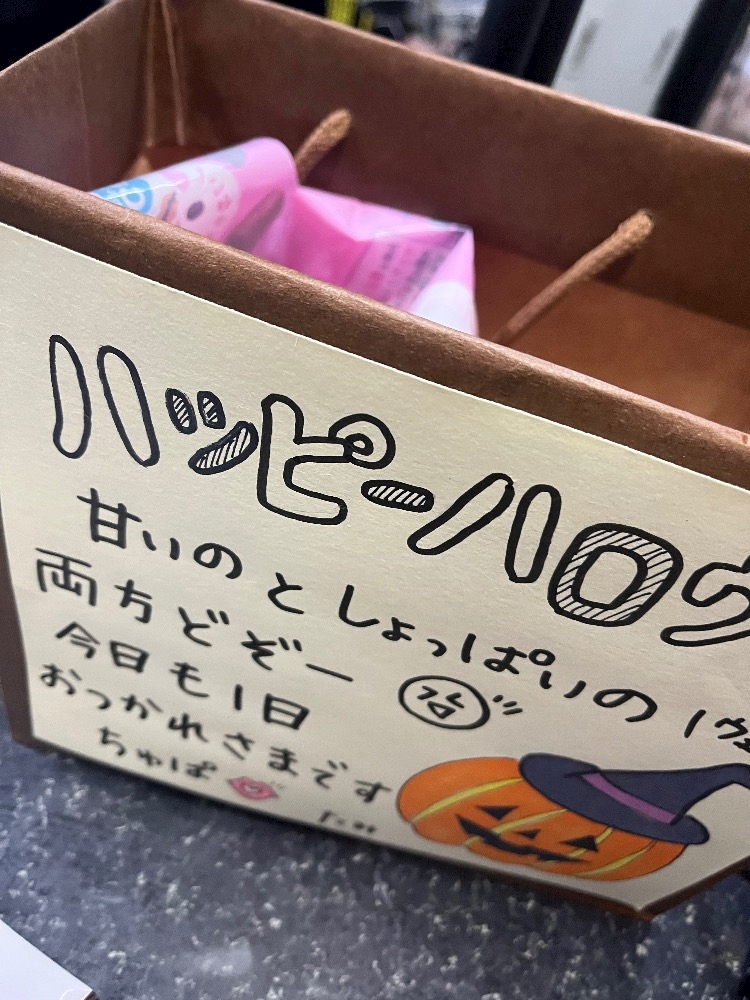 ハッピーハロウ
甘いのとしょっぱいの
両方どぞー
今日も1日
おつかれさまです
ちゅぱ
たみ